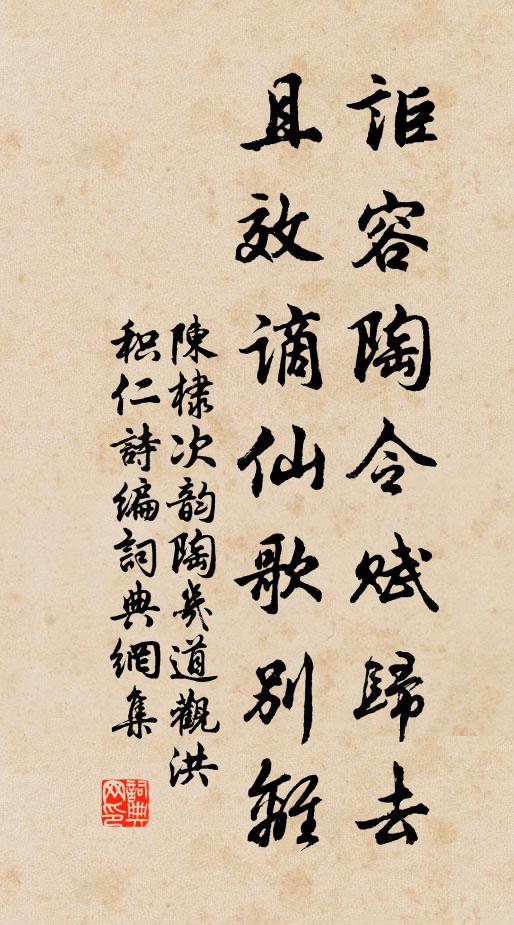 詎容陶令賦歸去
且效謫仙歌別離
陳棣次韵陶幾道觀洪
积仁詩編詞典網集
詞典
网印